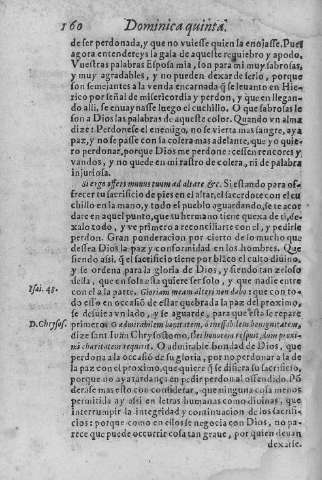 160 Dominica quinta.
de ser perdonada, y que no vuiesse quien la enojasse. Pues
agora entendereys la gala de aqueste requiebro y apodo.
Vuestras palabras Esposa mia, son para mi muy sabrosas,
y muy agradables, y no pueden dexar de serlo, porque
son semejantes a la venda encarnada q̃ se leuanto en Hie-
rico por señal de misericordia y perdon, y que en llegan-
do alli, se embaynasse luego el cuchillo. O que sabrosas le
son a Dios las palabras de aqueste color. Quando vn alma
dize: Perdonese el enemigo, no se vierta mas sangre, aya
paz, y no se passe con la colera mas adelante, que yo quie-
ro perdonar, porque Dios me perdone: cessen rencores y
vandos, y no quede en mi rastro de colera, ni de palabra
injuriosa.
Si ergo offers munus tuum ad altare &c. Si estando para of-
frecer tu sacrificio de pies en el altar, el sacerdote con el cu
chillo en la mano, y todo el pueblo aguardando, se te acor
dare en aquel punto, que tu hermano tiene quexa de ti, de
xalo todo, y ve primero a reconciliarte con el, y pedirle
perdon. Gran ponderacion por cierto de lo mucho que
dessea Dios la paz y conformidad en los hombres. Que
siendo assi, q̃ el sacrificio tiene por blãco el culto diuino,
y se ordena para la gloria de Dios, y siendo tan zeloso
della, que en sola esta quiere ser solo, y que nadie entre
Isai. 48. con el a la parte. Gloriam meam alteri non dabo: que con to-
do esso en occasion de estar quebrada la paz del proximo,
se desuie a vn lado, y se aguarde, para que esta se repare
D. Chrysos. primero: O admirabilem bonitatem, ò ineffabilem benignitatem,
dize sant Iuan Chrysostomo,
O admirable bondad de Dios, que
perdona a la occasiõ de su gloria, por no perdonar a la de
la paz con el proximo. que quiere q̃ se difiera su sacrificio,
porque no aya tardança en pedir perdon al offendido. Põ
derase mas esto con considerar, que ninguna cosa menos
permitida ay assi en letras humanas como diuinas, que
interrumpir la integridad y continuacion de los sacrifi-
cios: porque como en ellos se negocia con Dios, no pa-
rece que puede occurrir cosa tan graue, por quien deuan
dexarse.